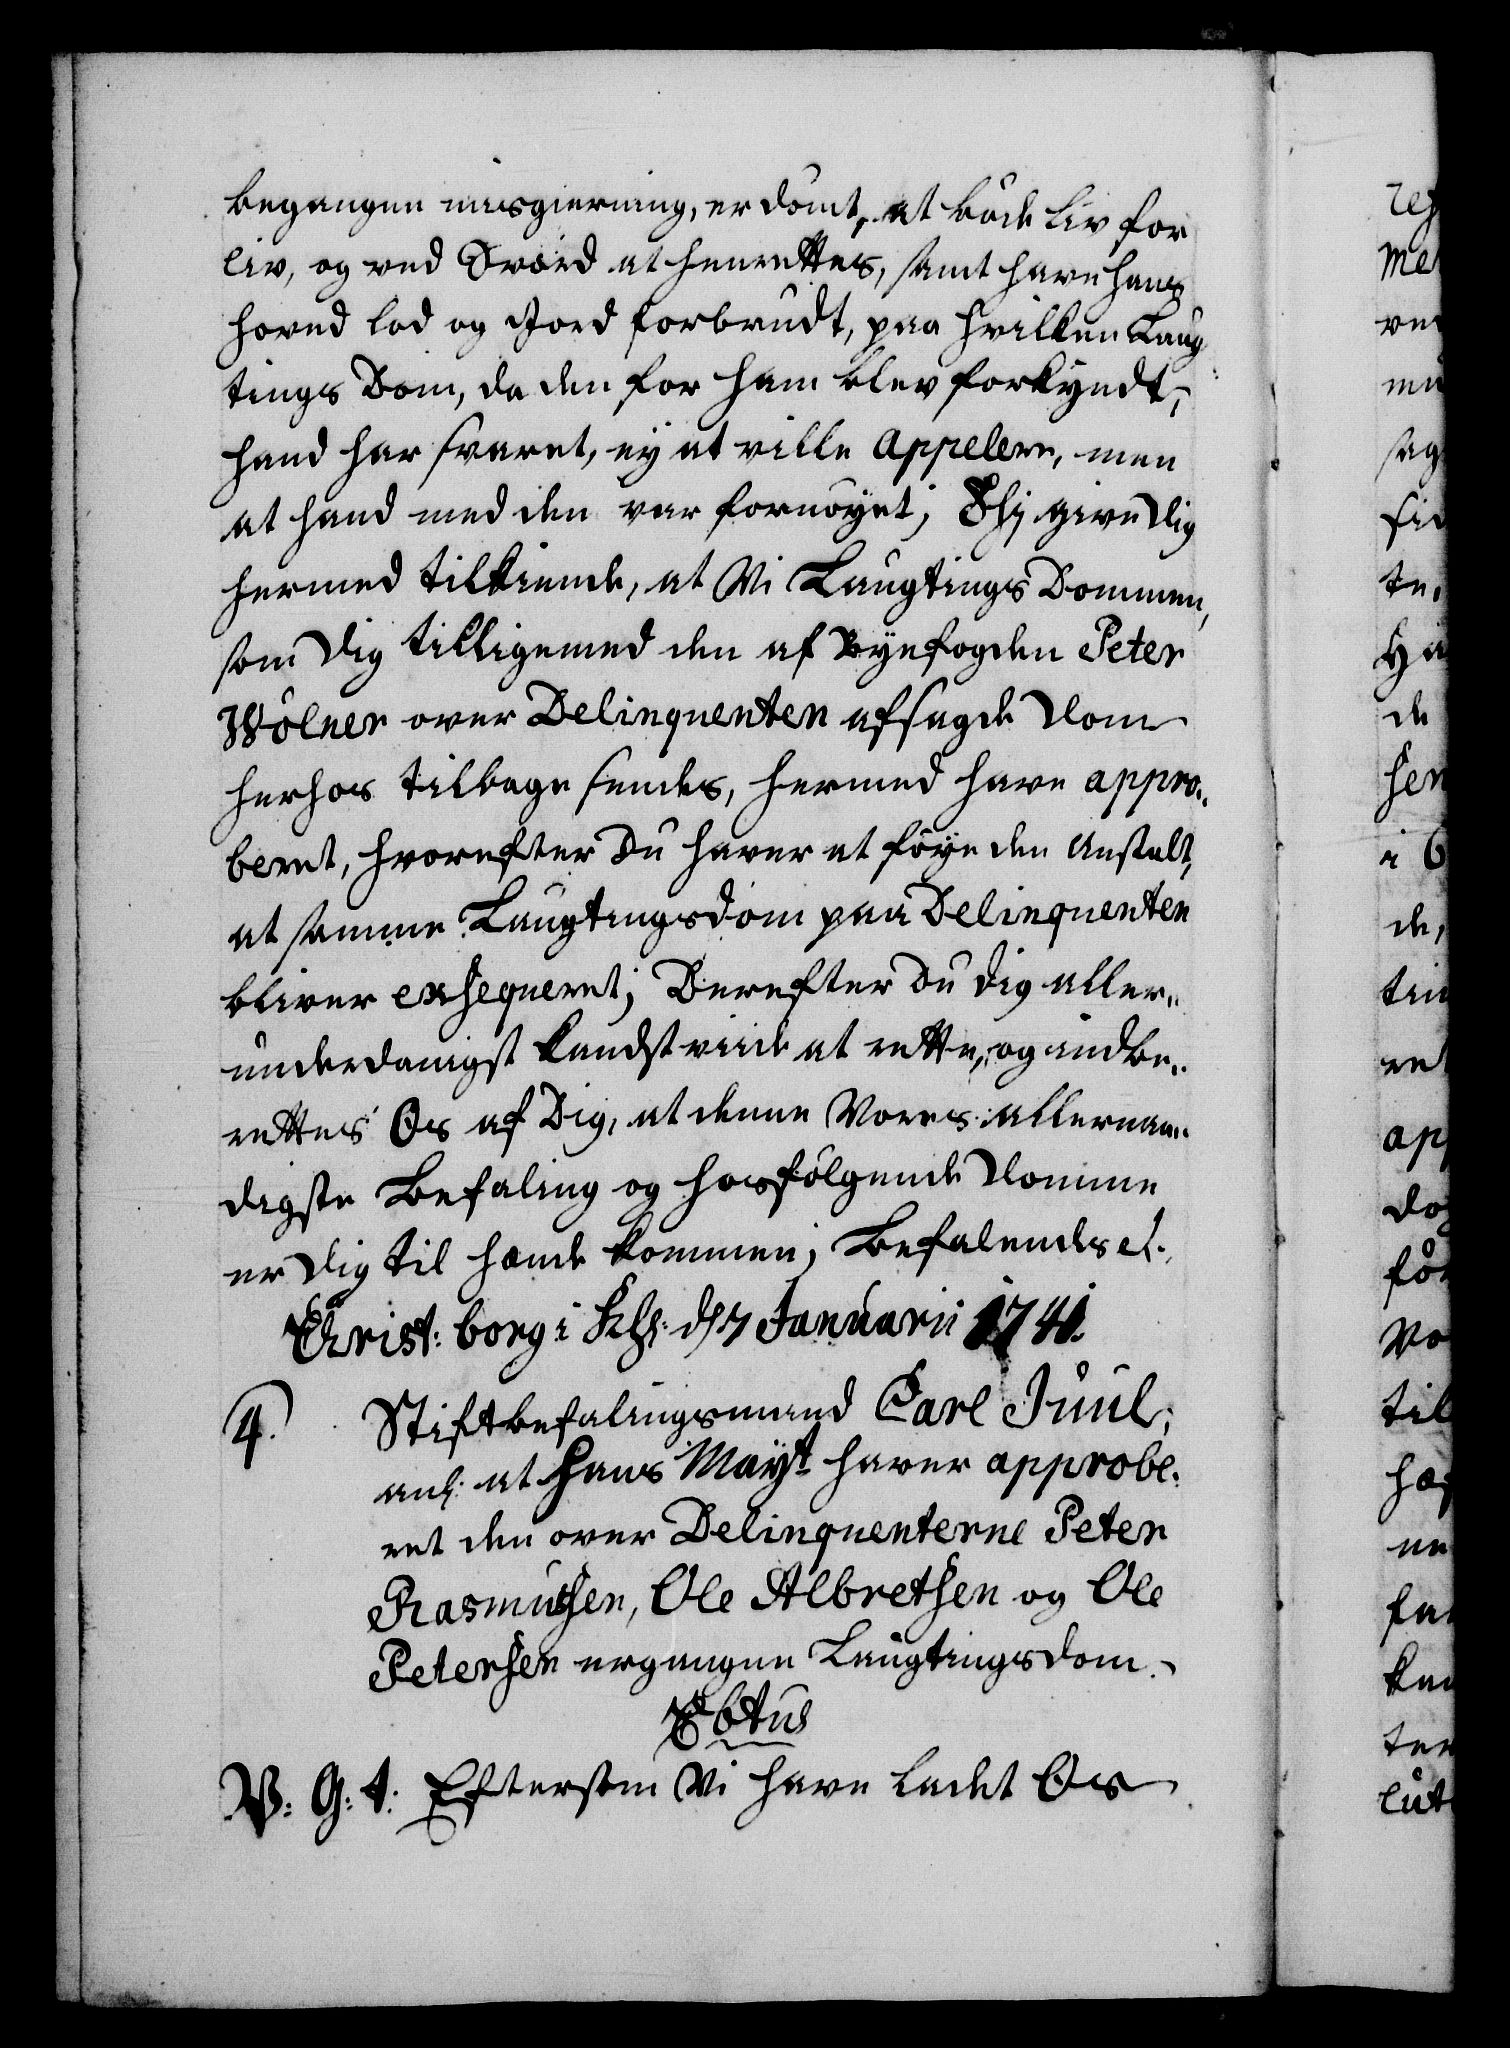 begangne misgierning, er dömt, at böde liv for
liv, og ved Sværd at henrettes, samt have hans
hoved lod og Jord forbrudt, paa hvilken Laug
tings Dom, da den for ham blev forkyndt,
hand har svaret, ey at ville Appelere, men
at hand med den var fornöyet; Thj give dig
hermed tilkiende, at Vi Laugtings Dommen,
som dig tilligemed den af Byefogden Peter
Wölner over Delinqventen afsagde Dom
herhos tilbage sendes, hermed have appro-
beret, hvorefter du haver at föye den Anstalt,
at samme Laugtingsdom paa Delinquenten
bliver exseqveret; Derefter du dig aller-
underdanigst kandst viide at rette, og indbe-
rettes Os af Dig, at denne Vores allernaa-
digste Befaling og hosfölgende Domme
er dig til hænde kommen; Befalendes etc.
Christ: borg i Kh: d 7 Januarii 1741.
4. Stiftbefalingsmand Carl Juul,
anl: at Hans Mayt haver approbe-
ret den over Delinquenterne Peter
Rasmussen, Ole Albretsen og Ole
Petersen ergangne Laugtingsdom.
C6tus
V: G: t: Eftersom Vi have ladet Os